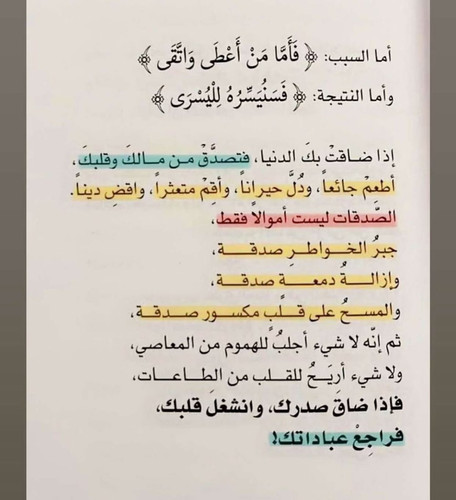 أما السبب: ﴿ فَأَمَّا مَنْ أَعْطَى وَاتَّقَى ﴾
وأما النتيجة: ﴿ فَسَنُيَسِّرُهُ لِلْيُسْرَى ﴾
إذا ضاقتْ بكَ الدنيا، فتصدَّقْ من مالكَ وقلبكَ،
أطعِمْ جائعاً، ودُلَّ حيراناً، وأقِمْ متعثراً، واقضِ ديناً.
الصَّدقات ليست أموالاً فقط،
جبرُ الخواطرِ صدقة،
وإزالةُ دمعة صدقة،
والمسحُ على قلبٍ مكسور صدقة،
ثم إنَّه لا شيء أجلبُ للهموم من المعاصي،
ولا شيء أريَحُ للقلب من الطاعات،
فإذا ضاقَ صدرك، وانشغلَ قلبك،
فراجِعْ عباداتك!